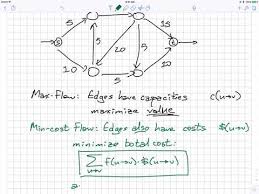 5
5
15
s
5
20
5
t
10
10
5
Max-Flow: Edges have capacities c(u→v)
maximize value
Min-cost Flow: Edges also have costs $(u→v)
minimize total cost:
∑ f(u→v)·$(u→v)
u→v